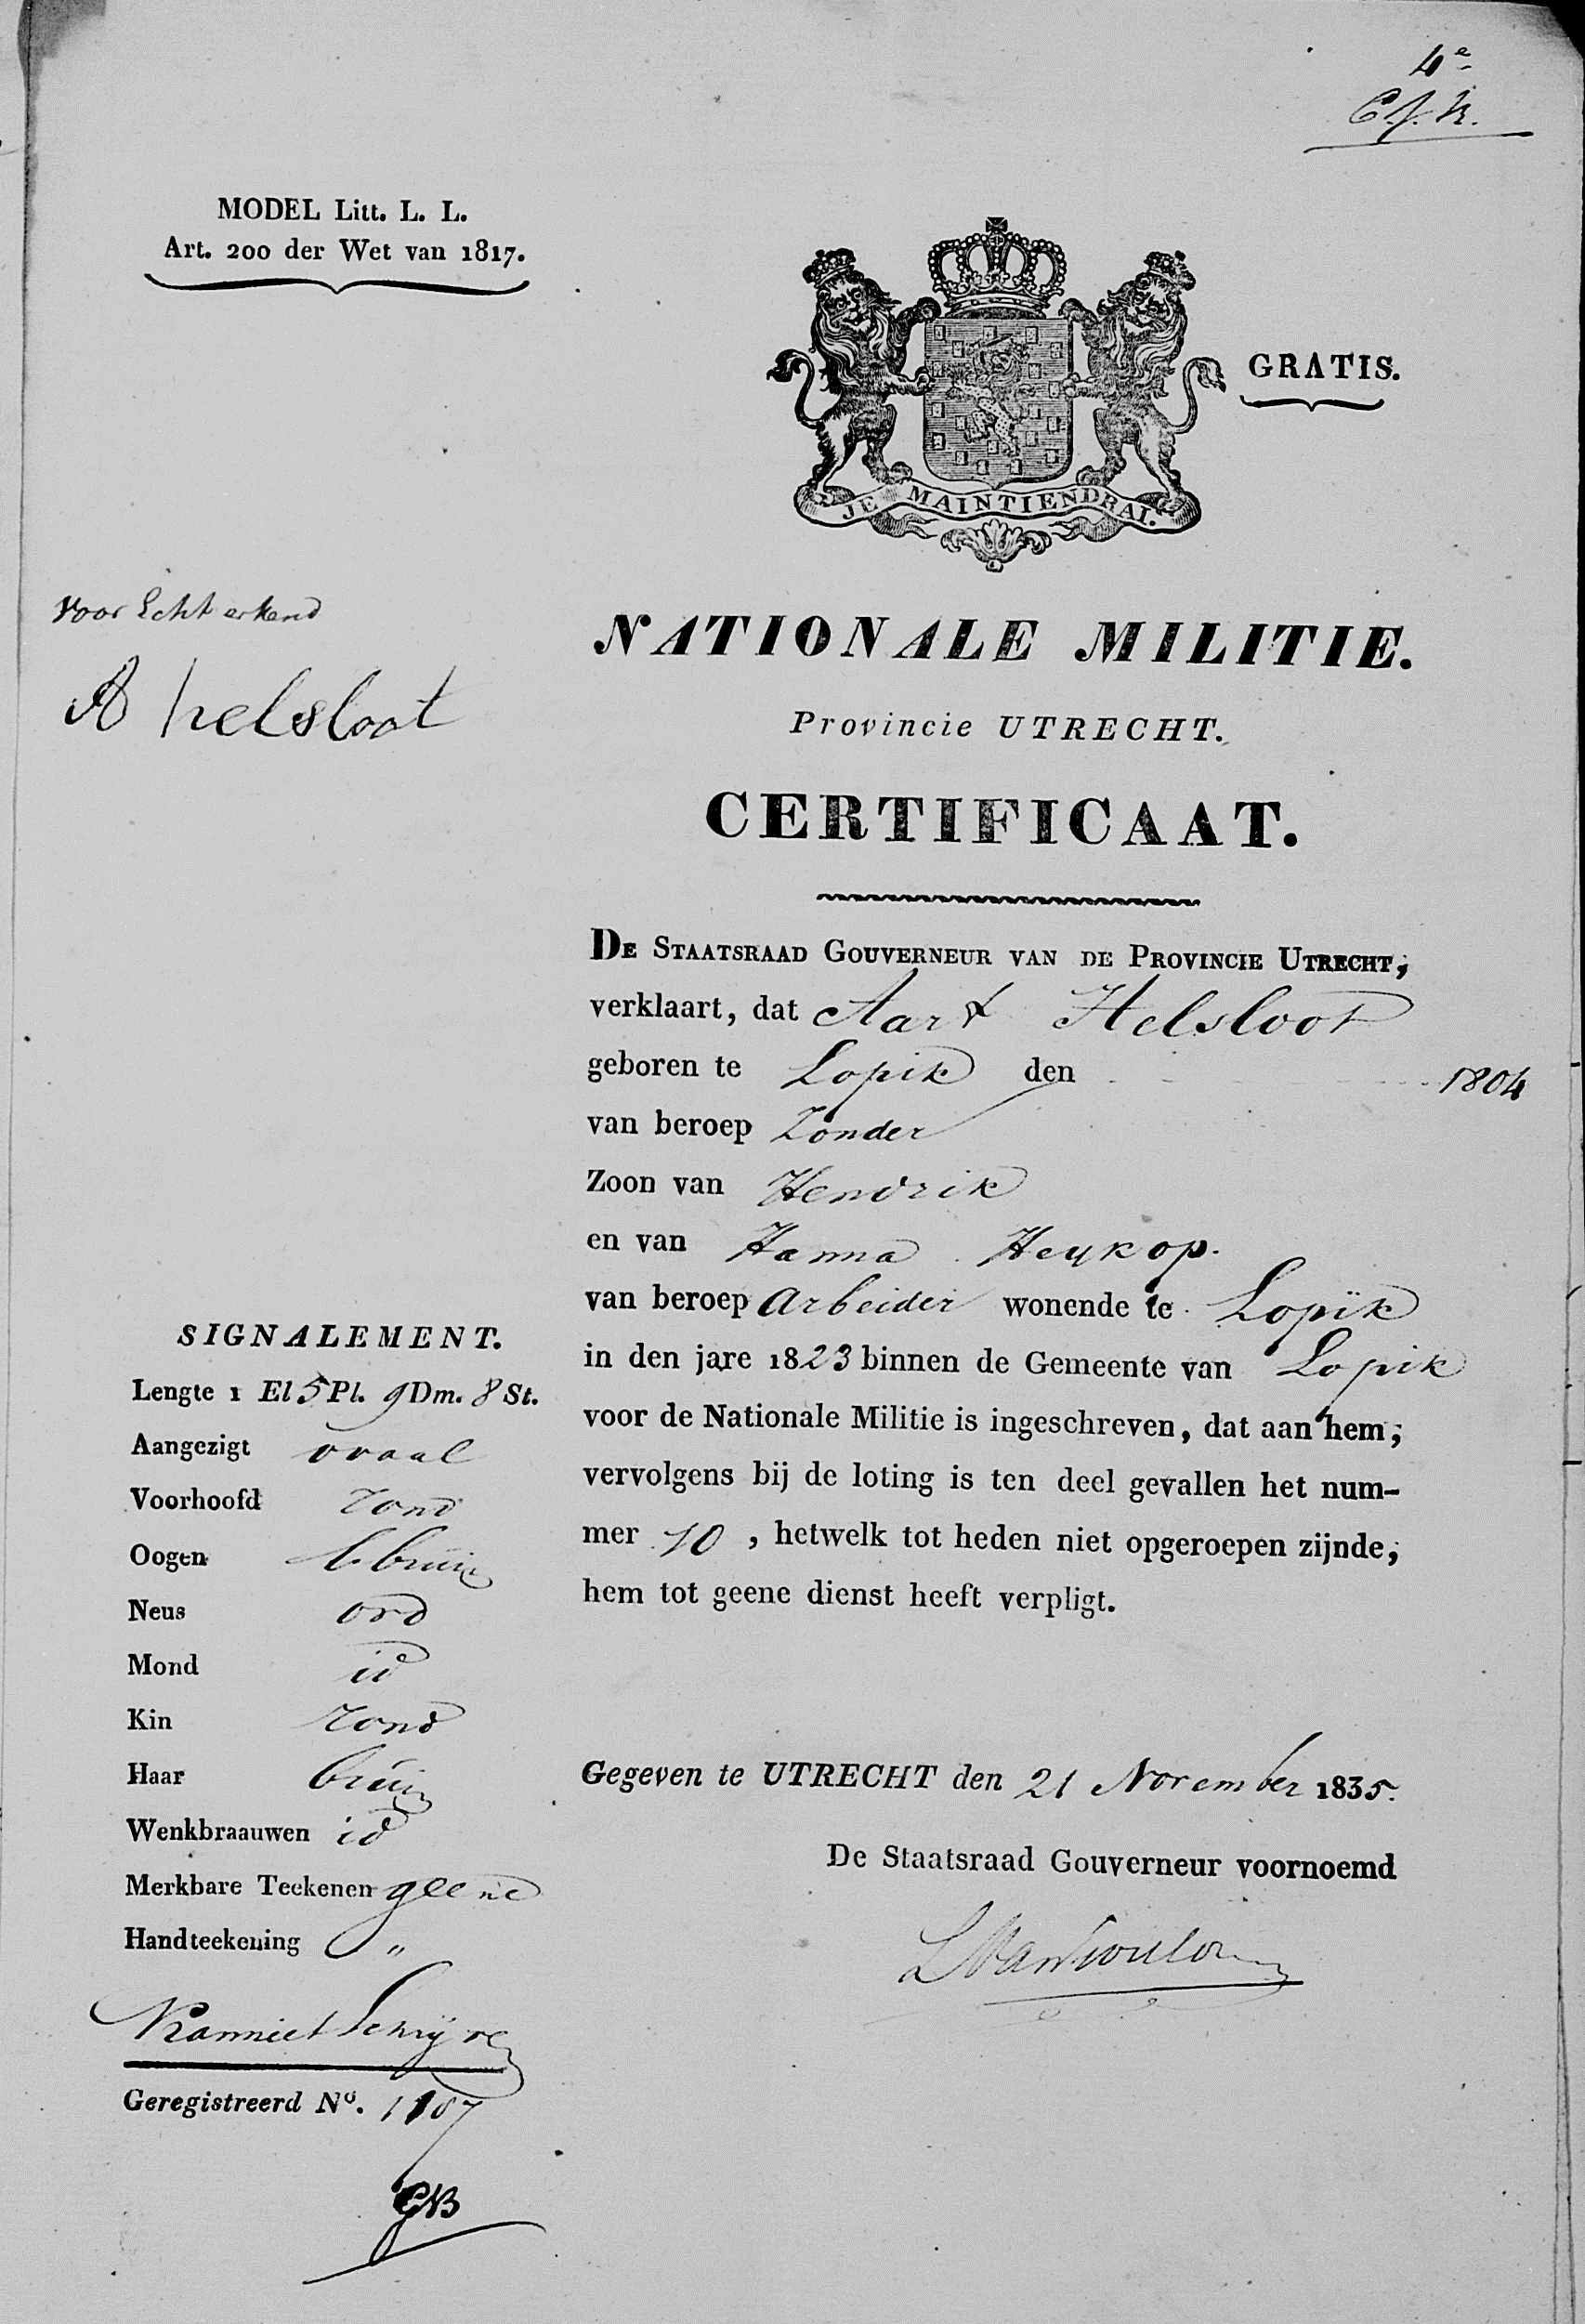 4e
MODEL Litt. L. L.
Art. 200 der Wet van 1817.
GRATIS.
JE MAINTIENDRAI.
voor Echt erkend
A helsloot
NATIONALE MILITIE.
Provincie UTRECHT.
CERTIFICAAT.
DE STAATSRAAD GOUVERNEUR VAN DE PROVINCIE UTRECHT,
verklaart, dat Aart Helsloot
geboren te Lopik den 1804
van beroep Zonder
Zoon van Hendrik
en van Hanna Heykop.
van beroep Arbeider wonende te Lopik
in den jare 1823 binnen de Gemeente van Lopik
voor de Nationale Militie is ingeschreven, dat aan hem,
vervolgens bij de loting is ten deel gevallen het num-
mer 10, hetwelk tot heden niet opgeroepen zijnde,
hem tot geene dienst heeft verpligt.
Gegeven te UTRECHT den 21 November 1835.
De Staatsraad Gouverneur voornoemd
SIGNALEMENT.
Lengte 1 El 5 Pl. 9 Dm. 8 St.
Aangezigt ovaal
Voorhoofd rond
Oogen l. bruin
Neus ord
Mond id
Kin rond
Haar bruin
Wenkbraauwen id
Merkbare Teekenen geene
Handteekening "
Kan niet Schrijven
Geregistreerd No. 1107